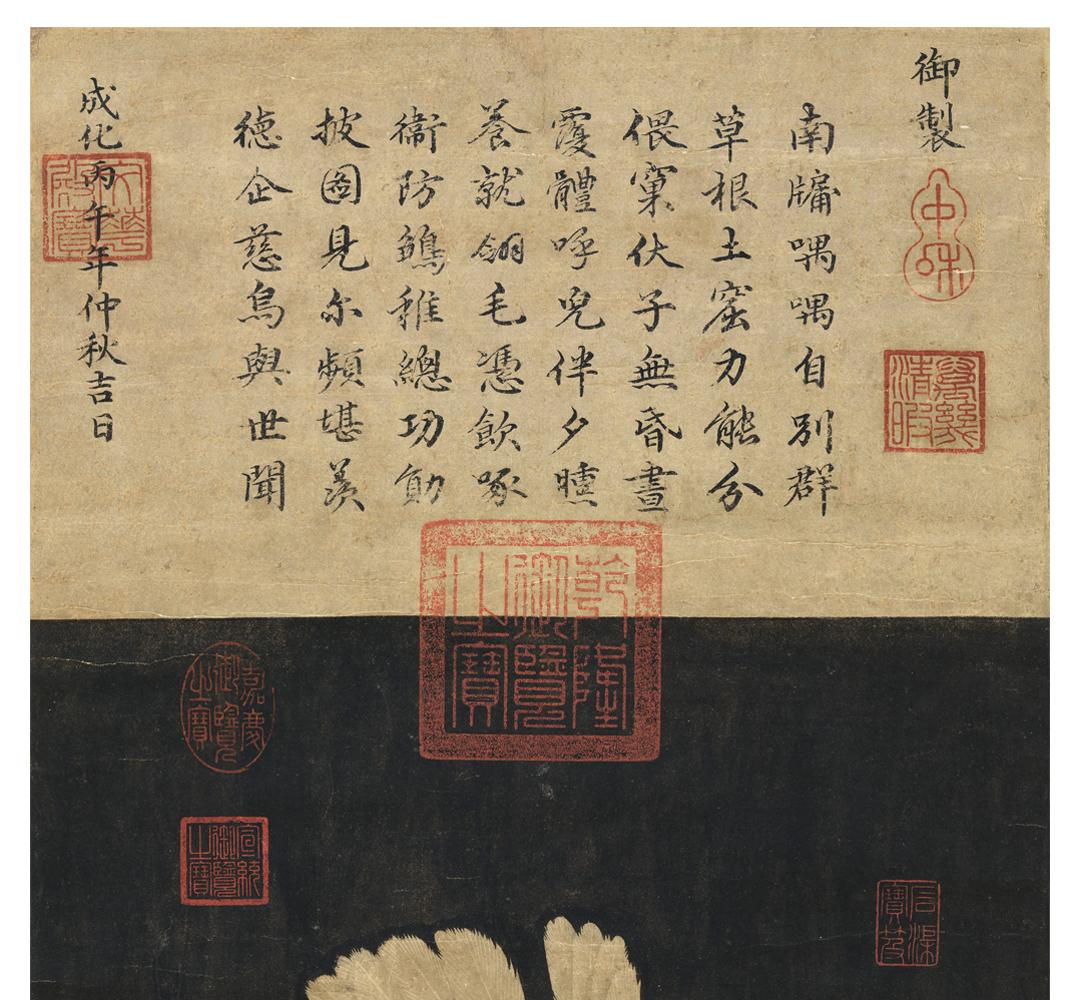 御製
中和
萬幾清暇
南牖喁喁自別群
草根土窟力能分
偎窠伏子無昏晝
覆體呼兒伴夕曛
養就翎毛憑飲啄
衛防鶵稚總功勛
披圖見尔頻堪羨
德企慈烏與世聞
成化丙午年仲秋吉日
文華殿寶
乾隆御覽之寶
嘉慶御覽之寶
宣統御覽之寶
石渠寶笈